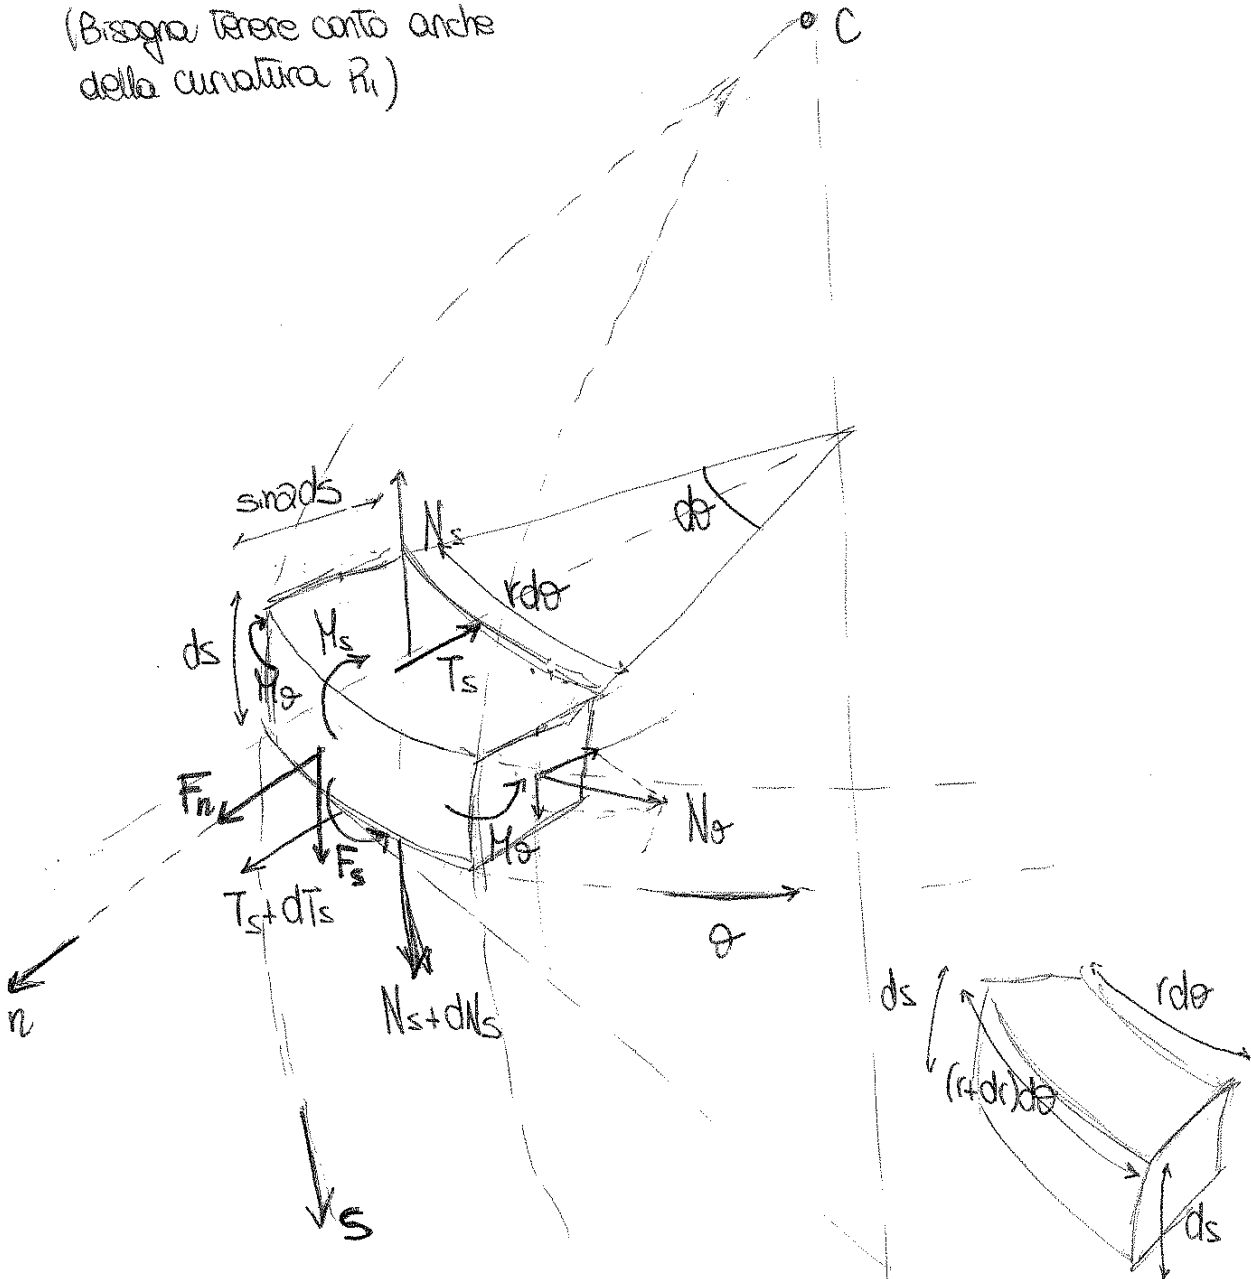 (Bisogna tenere conto anche
della curvatura R₁)
C
sinαds
Ns
dθ
rdθ
ds
Ms
Ts
Mθ
Fn
Nθ
Mθ
Fs
Ts+dTs
θ
n
Ns+dNs
ds
rdθ
(r+dr)dθ
s
ds